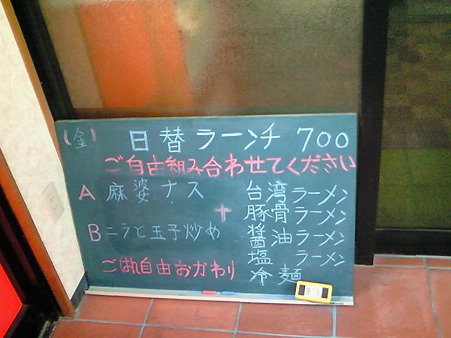 (金) 日替ラーンチ 700
ご自由組み合わせてください
A 麻婆ナス
B ニラと玉子炒め
+
台湾ラーメン
豚骨ラーメン
醤油ラーメン
塩 ラーメン
冷麺
ごはん自由おかわり